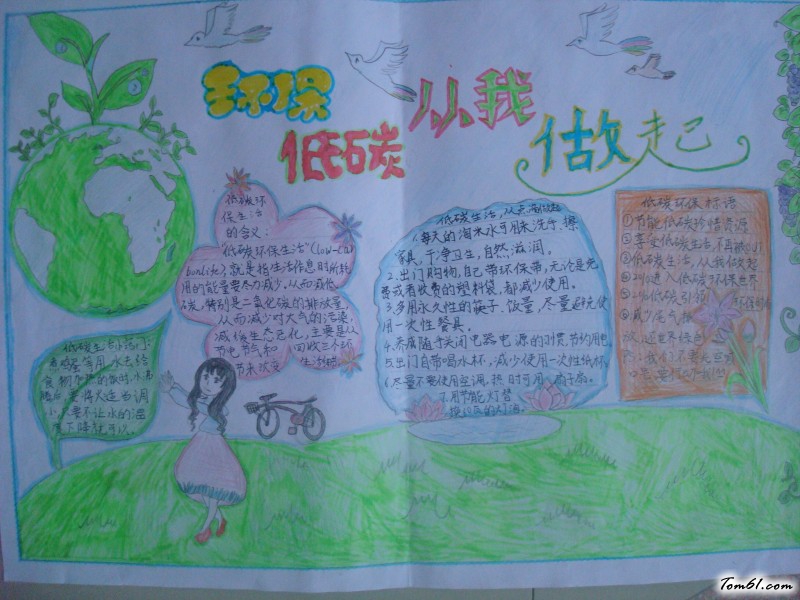 环保
低碳
从我
做起
低碳环
保生活
的含义：
"低碳环保生活"(low-car
就是指生活作息时所耗
用的能量要尽力减少，从而减低
碳，特别是二氧化碳的排放量，
从而减少对大气的污染
减缓生态恶化，主要是从
节电节气和回收三个环
节来改变生活细节
低碳生活小窍门：
水去给
下降就可以。
低碳生活，从点滴做起
1.每天的淘米水可用来洗手、擦
家具，干净卫生，自然滋润。
2.出门购物，自己带环保带，无论是免
费或者收费的塑料袋，都减少使用。
3.多用永久性的筷子、饭盒，尽量避免使
用一次性餐具。
4.养成随手关闭电器电源的习惯，节约用电
5.出门自带喝水杯，减少使用一次性纸杯
6.尽量不要使用空调，热时可用扇子扇。
7.用节能灯替
低碳环保标语
①节能低碳珍惜资源
②享受低碳生活
③低碳生活，从我做起
④进入低碳环保世界
⑥减少尾气排
Tom61.com